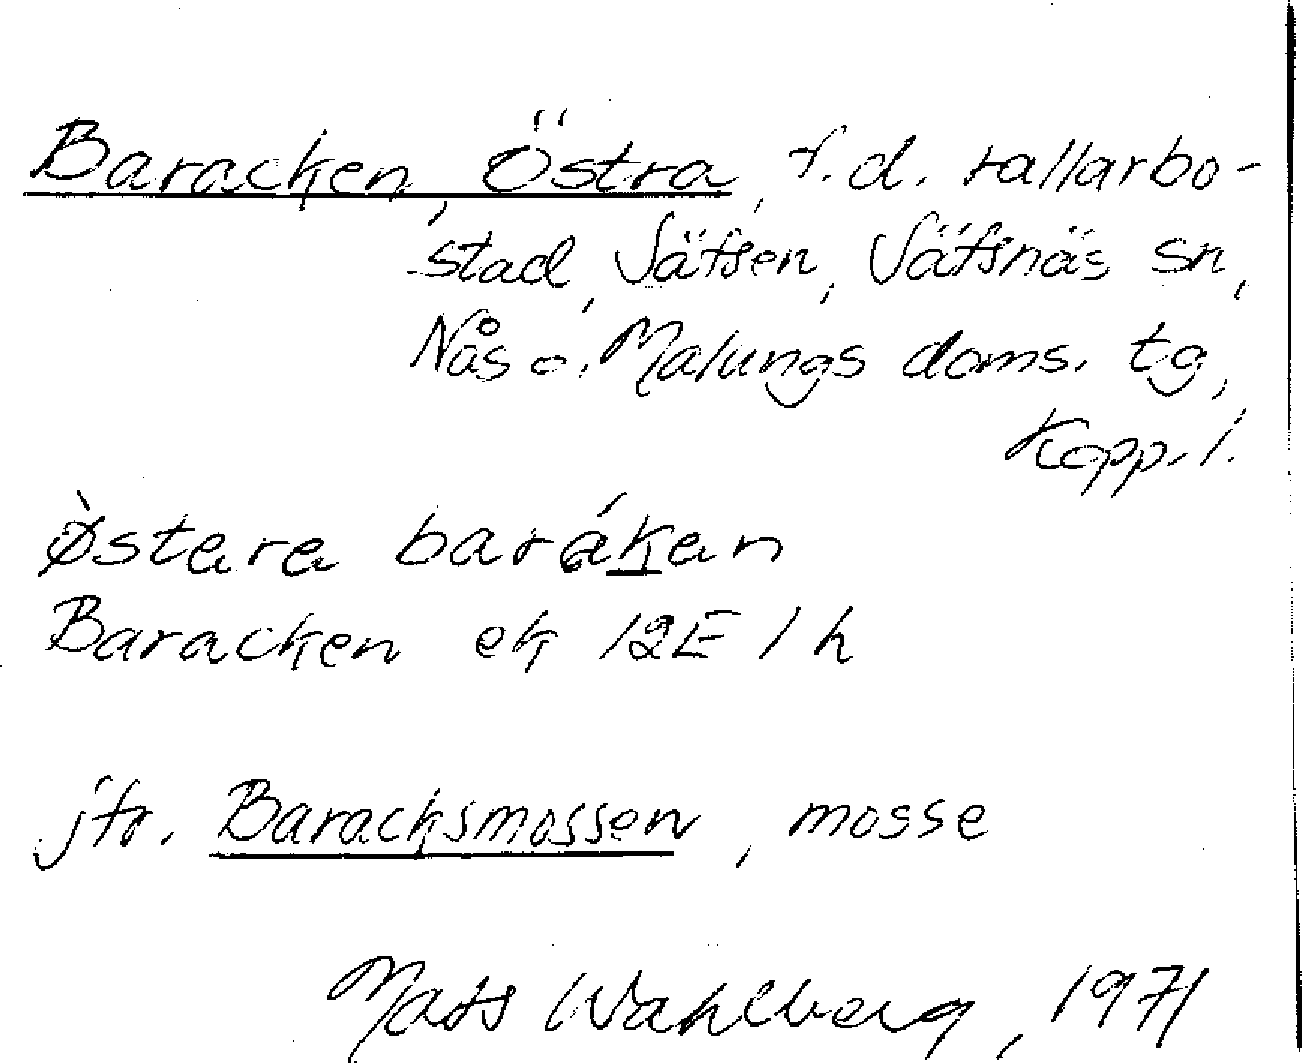 Baracken, Östra, f.d. rallarbo-
stad, Sätsen, Säfsnäs sn,
Nås o. Malungs doms. tg,
Kopp. l.
ø̀stera baráken
Baracken ek 12E 1h
jfr. Baracksmossen, mosse
Mats Wahlberg, 1971